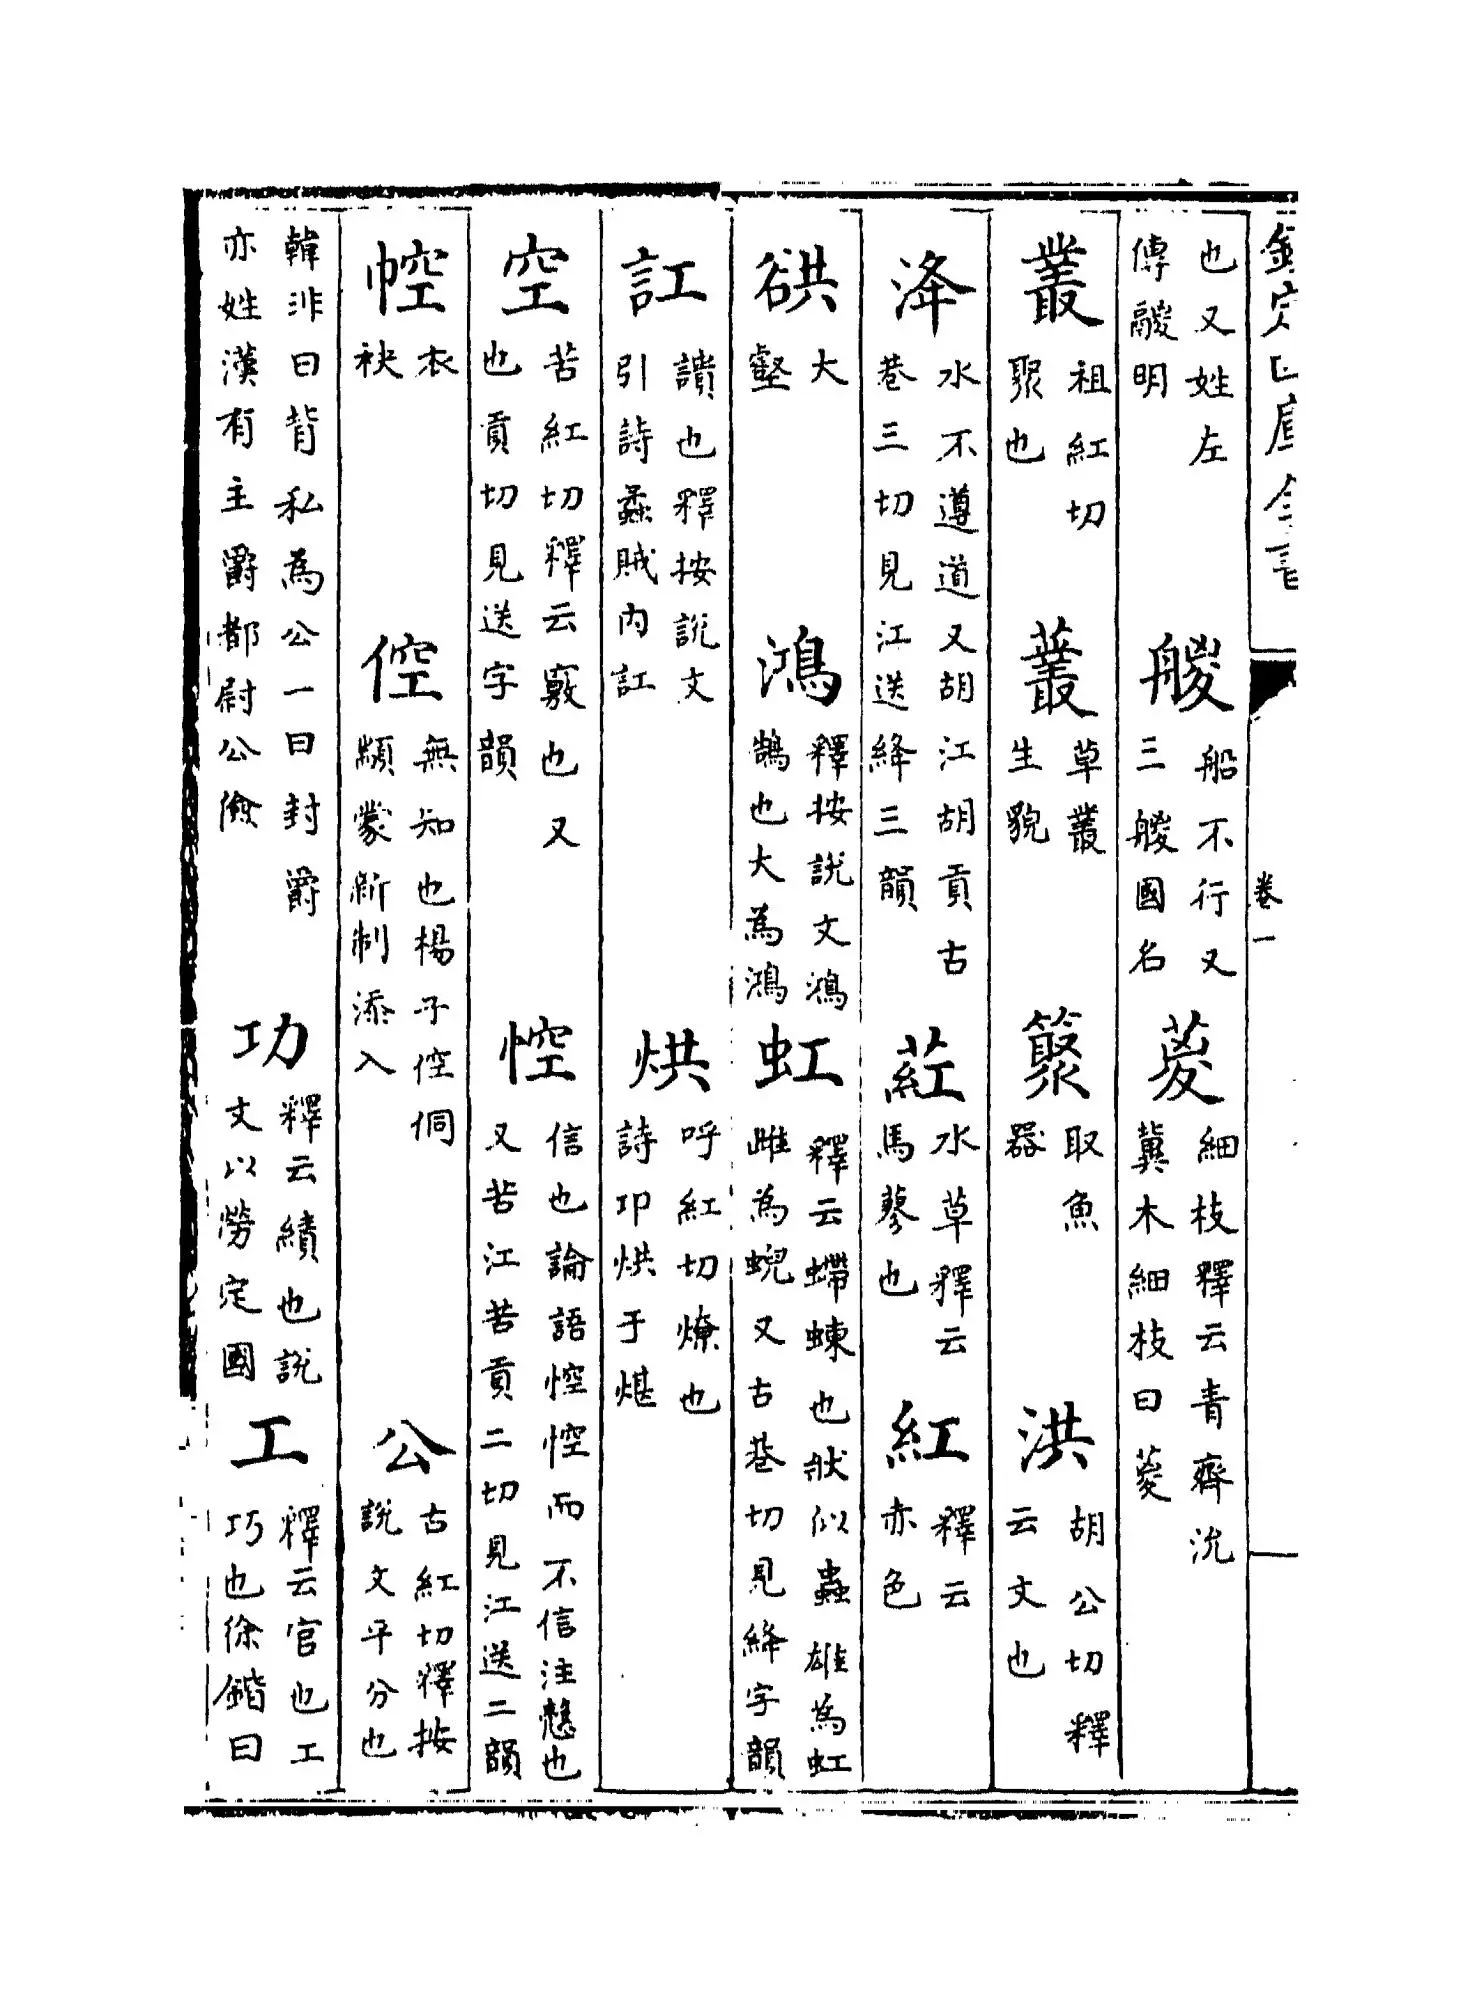 欽定四庫全書
卷一
也又姓左傳鬷明 艐船不行又三艐國名 葼細枝釋云青齊沇冀木細枝曰葼
叢祖紅切聚也 藂草叢生貌 𥴭取魚器 洪胡公切釋云文也
洚水不遵道又胡江胡貢古巷三切見江送絳三韻 葒水草釋云馬蓼也 紅釋云赤色
谼大壑 鴻釋按說文鴻鵠也大為鴻 虹釋云螮蝀也狀似蟲雄為虹雌為蜺又古巷切見絳字韻
訌讃也釋按說文引詩蟊賊內訌 烘呼紅切燎也詩卬烘于煁
空苦紅切釋云竅也又也貢切見送字韻 悾信也論語悾悾而不信注慤也又苦江苦貢二切見江送二韻
㤟衣袂 倥無知也楊子倥侗顓蒙新制添入 公古紅切釋按說文平分也
韓非曰背私為公一曰封爵亦姓漢有主爵都尉公儉 功釋云績也說文以勞定國 工釋云官也工巧也徐鍇曰